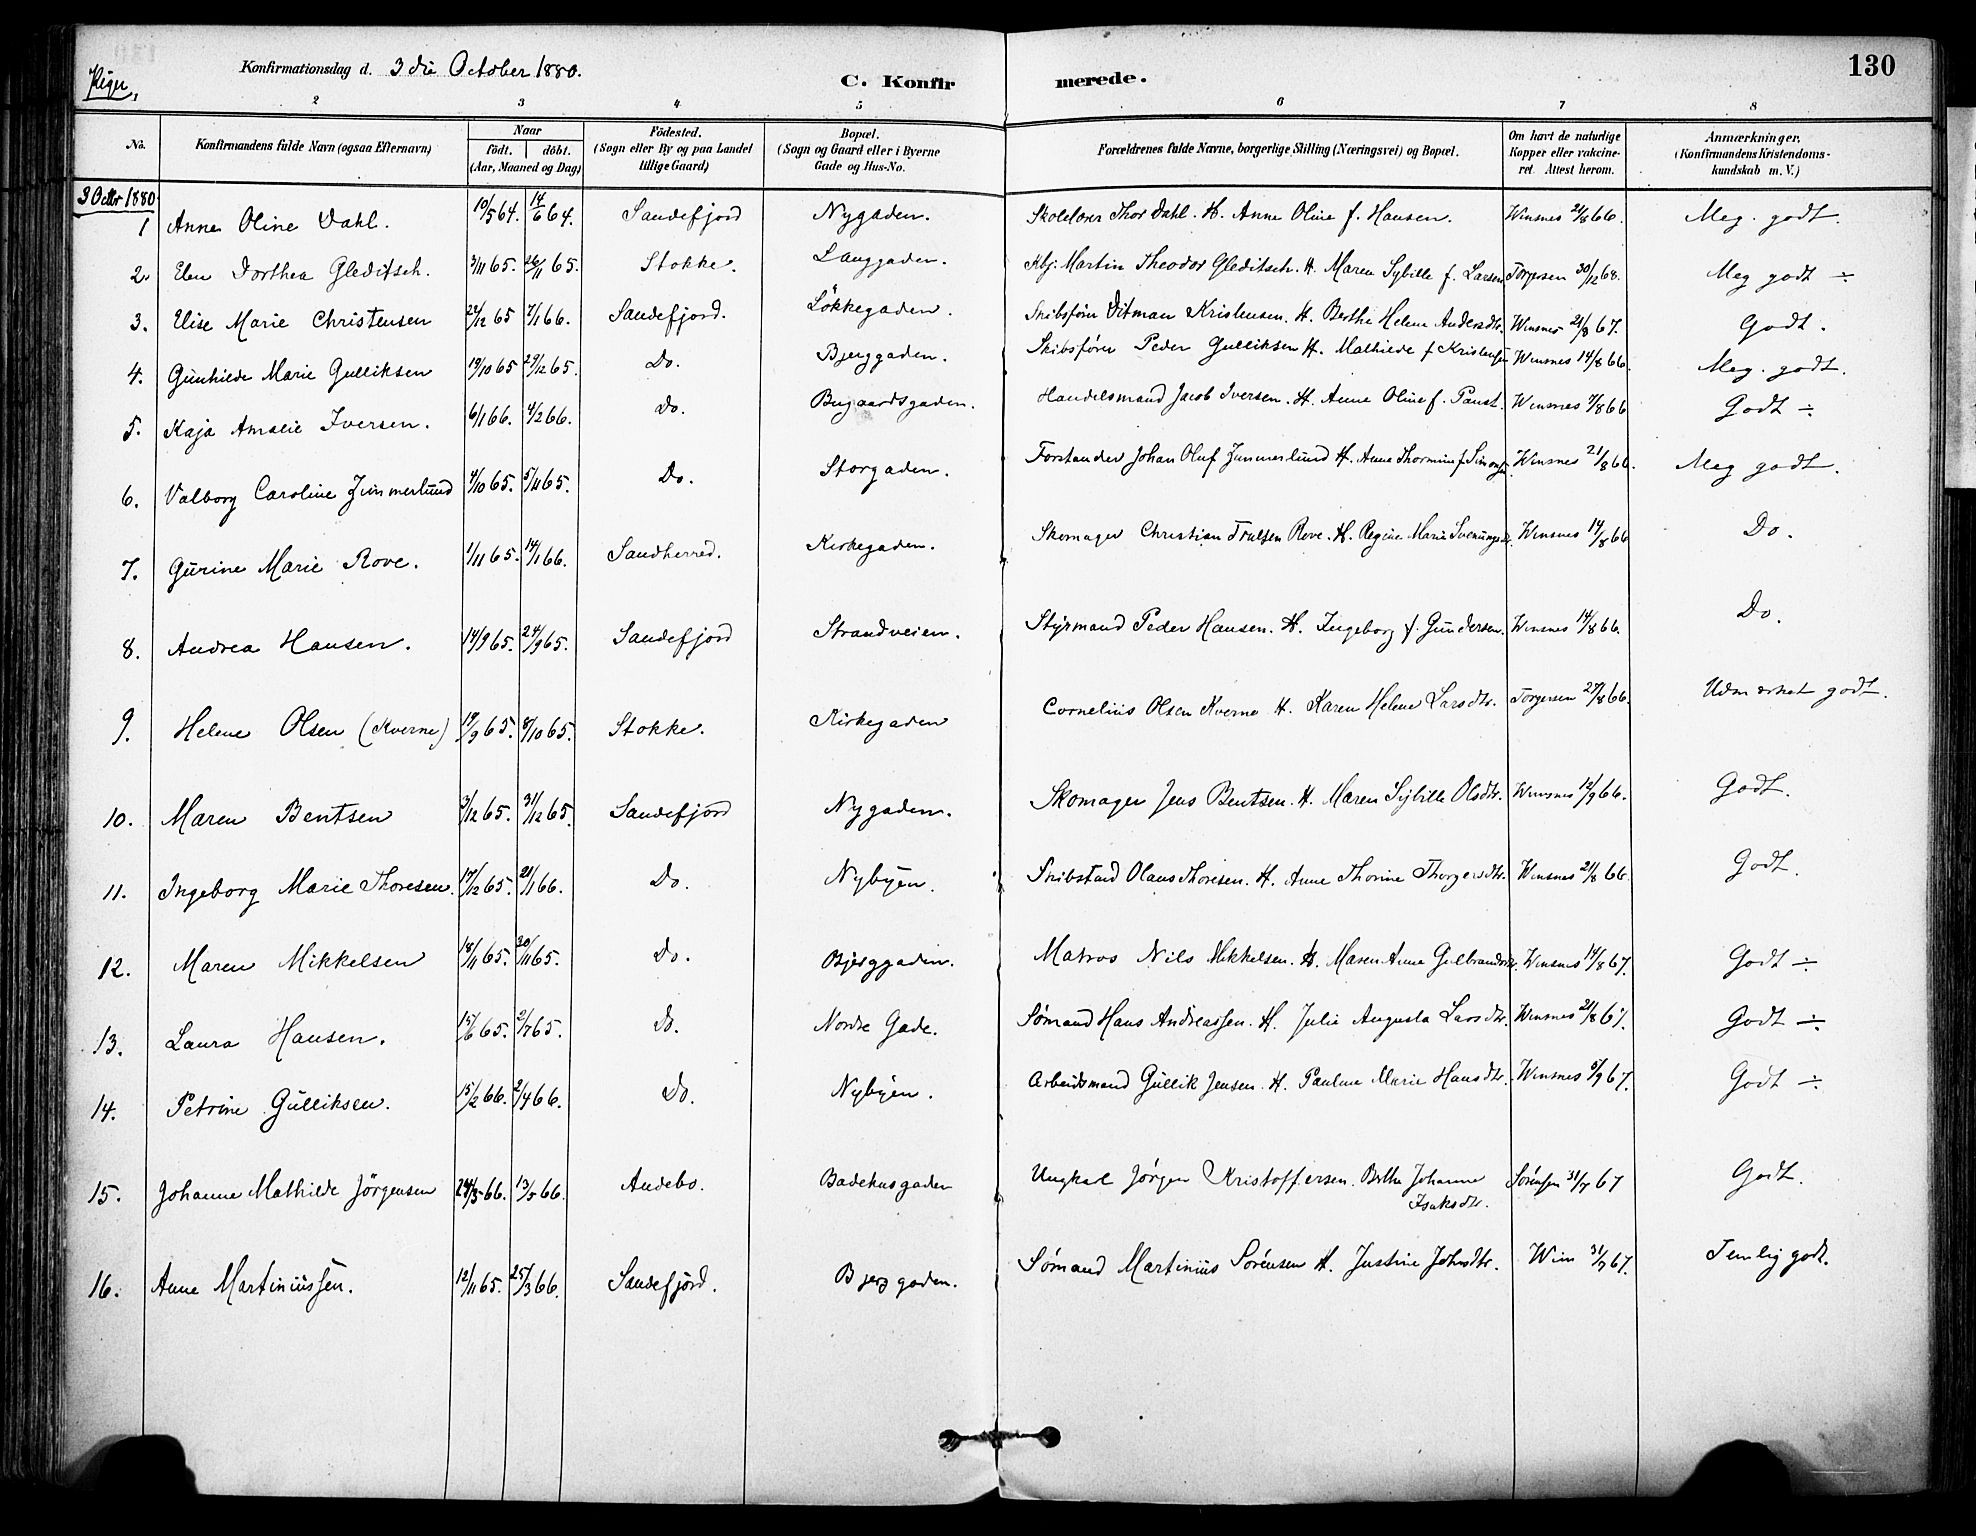 130
Piger, Konfirmationsdag d. 3die October 1880. C. Konfirmerede.
2 3 4 5 6 7 8
No. Konfirmandens fulde Navn (ogsaa Efternavn) Naar födt. döbt. (Aar, Maaned og Dag) Födested. (Sogn eller By og paa Landet tillige Gaard) Bopæl. (Sogn og Gaard eller i Byerne Gade og Hus-No. Forældrenes fulde Navne, borgerlige Stilling (Næringsvei) og Bopæl. Om havt de naturlige Kopper eller vakcineret. Attest herom. Anmærkninger, (Konfirmandens Kristendomskundskab m. V.)
3 Octbr 1880
1 Anne Oline Dahl. 10/5 64. 14/6 64. Sandefjord Nygaden. Skolelærer Thor Dahl. H. Anne Oline f. Hansen. Winsnes 21/8 66. Meg. godt.
2. Elen Dorthea Gleditsch. 3/11 65. 26/11 65. Stokke. Langgaden. Kbj. Martin Theodor Gleditsch. H. Maren Sybille f. Larsen Torgersen 30/12 68. Meg godt ÷
3. Elise Marie Christensen 22/12 65 7/1 66. Sandefjord. Lökkegaden. Skibsfører Ditman Kristensen. H. Berthe Helene Andersdtr. Winsnes 21/8 67. Godt.
4. Gunhilde Marie Gulliksen 19/10 65 29/12 65. Do. Bjerggaden. Skibsfører Peder Gulliksen H. Mathilde f Kristensen Winsnes 14/8 66. Meg. godt.
5. Kaja Amalie Iversen. 6/1 66. 4/2 66. Do. Bugaardsgaden. Handelsmand Jacob Iversen. H. Anne Oline f. Paust. Winsnes 7/8 66 Godt ÷
6. Valborg Caroline Zimmerlund 4/10 65. 5/11 65. Do. Storgaden. Forstander Johan Oluf Zimmerlund H. Anne Thormine f. Simonsen Winsnes 21/8 66. Meg godt.
7. Gurine Marie Rove. 1/11 65. 14/1 66. Sandherred. Kirkegaden. Skomager Christian Trulsen Rove. H. Regine Marie Svenungsdtr. Winsnes 14/8 66 Do.
8. Andrea Hansen. 14/9 65. 24/9 65. Sandefjord Strandveien. Styrmand Peder Hansen. H. Ingeborg f. Gundersen. Winsnes 14/8 66. Do.
9. Helene Olsen (Kverne) 19/9 65. 8/10 65. Stokke. Kirkegaden Cornelius Olsen Kverne H. Karen Helene Larsdtr. Torgersen 27/8 66. Udmærket godt.
10. Maren Bentsen 3/12 65. 31/12 65. Sandefjord Nygaden. Skomager Jens Bentsen. H. Maren Sybille Olsdtr. Winsnes 12/9 66. Godt.
11. Ingeborg Marie Thoresen. 17/12 65. 21/1 66. Do. Nybyen. Skibstmd Olaus Thoresen. H. Anne Thorine Thorgersdtr. Winsnes 21/8 66. Godt.
12. Maren Mikkelsen 18/11 65. 30/11 65. Do. Bjerggaden. Matros Nils Mikkelsen. H. Maren Anne Gulbrandsdtr. Winsnes 14/8 67. Godt ÷
13. Laura Hansen. 15/6 65. 2/7 65. Do. Nordre Gade. Sømand Hans Andreassen. H. Julie Augusta Larsdtr. Winsnes 21/8 67. Godt ÷
14. Petrine Gulliksen. 15/2 66. 2/4 66. Do. Nybyen. Arbeidsmand Gullik Jensen. H. Pauline Marie Hansdtr. Winsnes 5/9 67. Godt ÷
15. Johanne Mathilde Jörgensen 24/3 66. 13/5 66. Andebo. Badehusgaden Ungkarl Jörgen Kristoffersen. Berthe Johanne Isaksdtr. Sørensen 31/7 67 Godt.
16. Anne Martiniussen. 12/11 65. 25/3 66. Sandefjord. Bjerggaden. Sømand Martinius Sörensen H. Justine Johnsdtr. Win 31/7 67. Temlig godt.